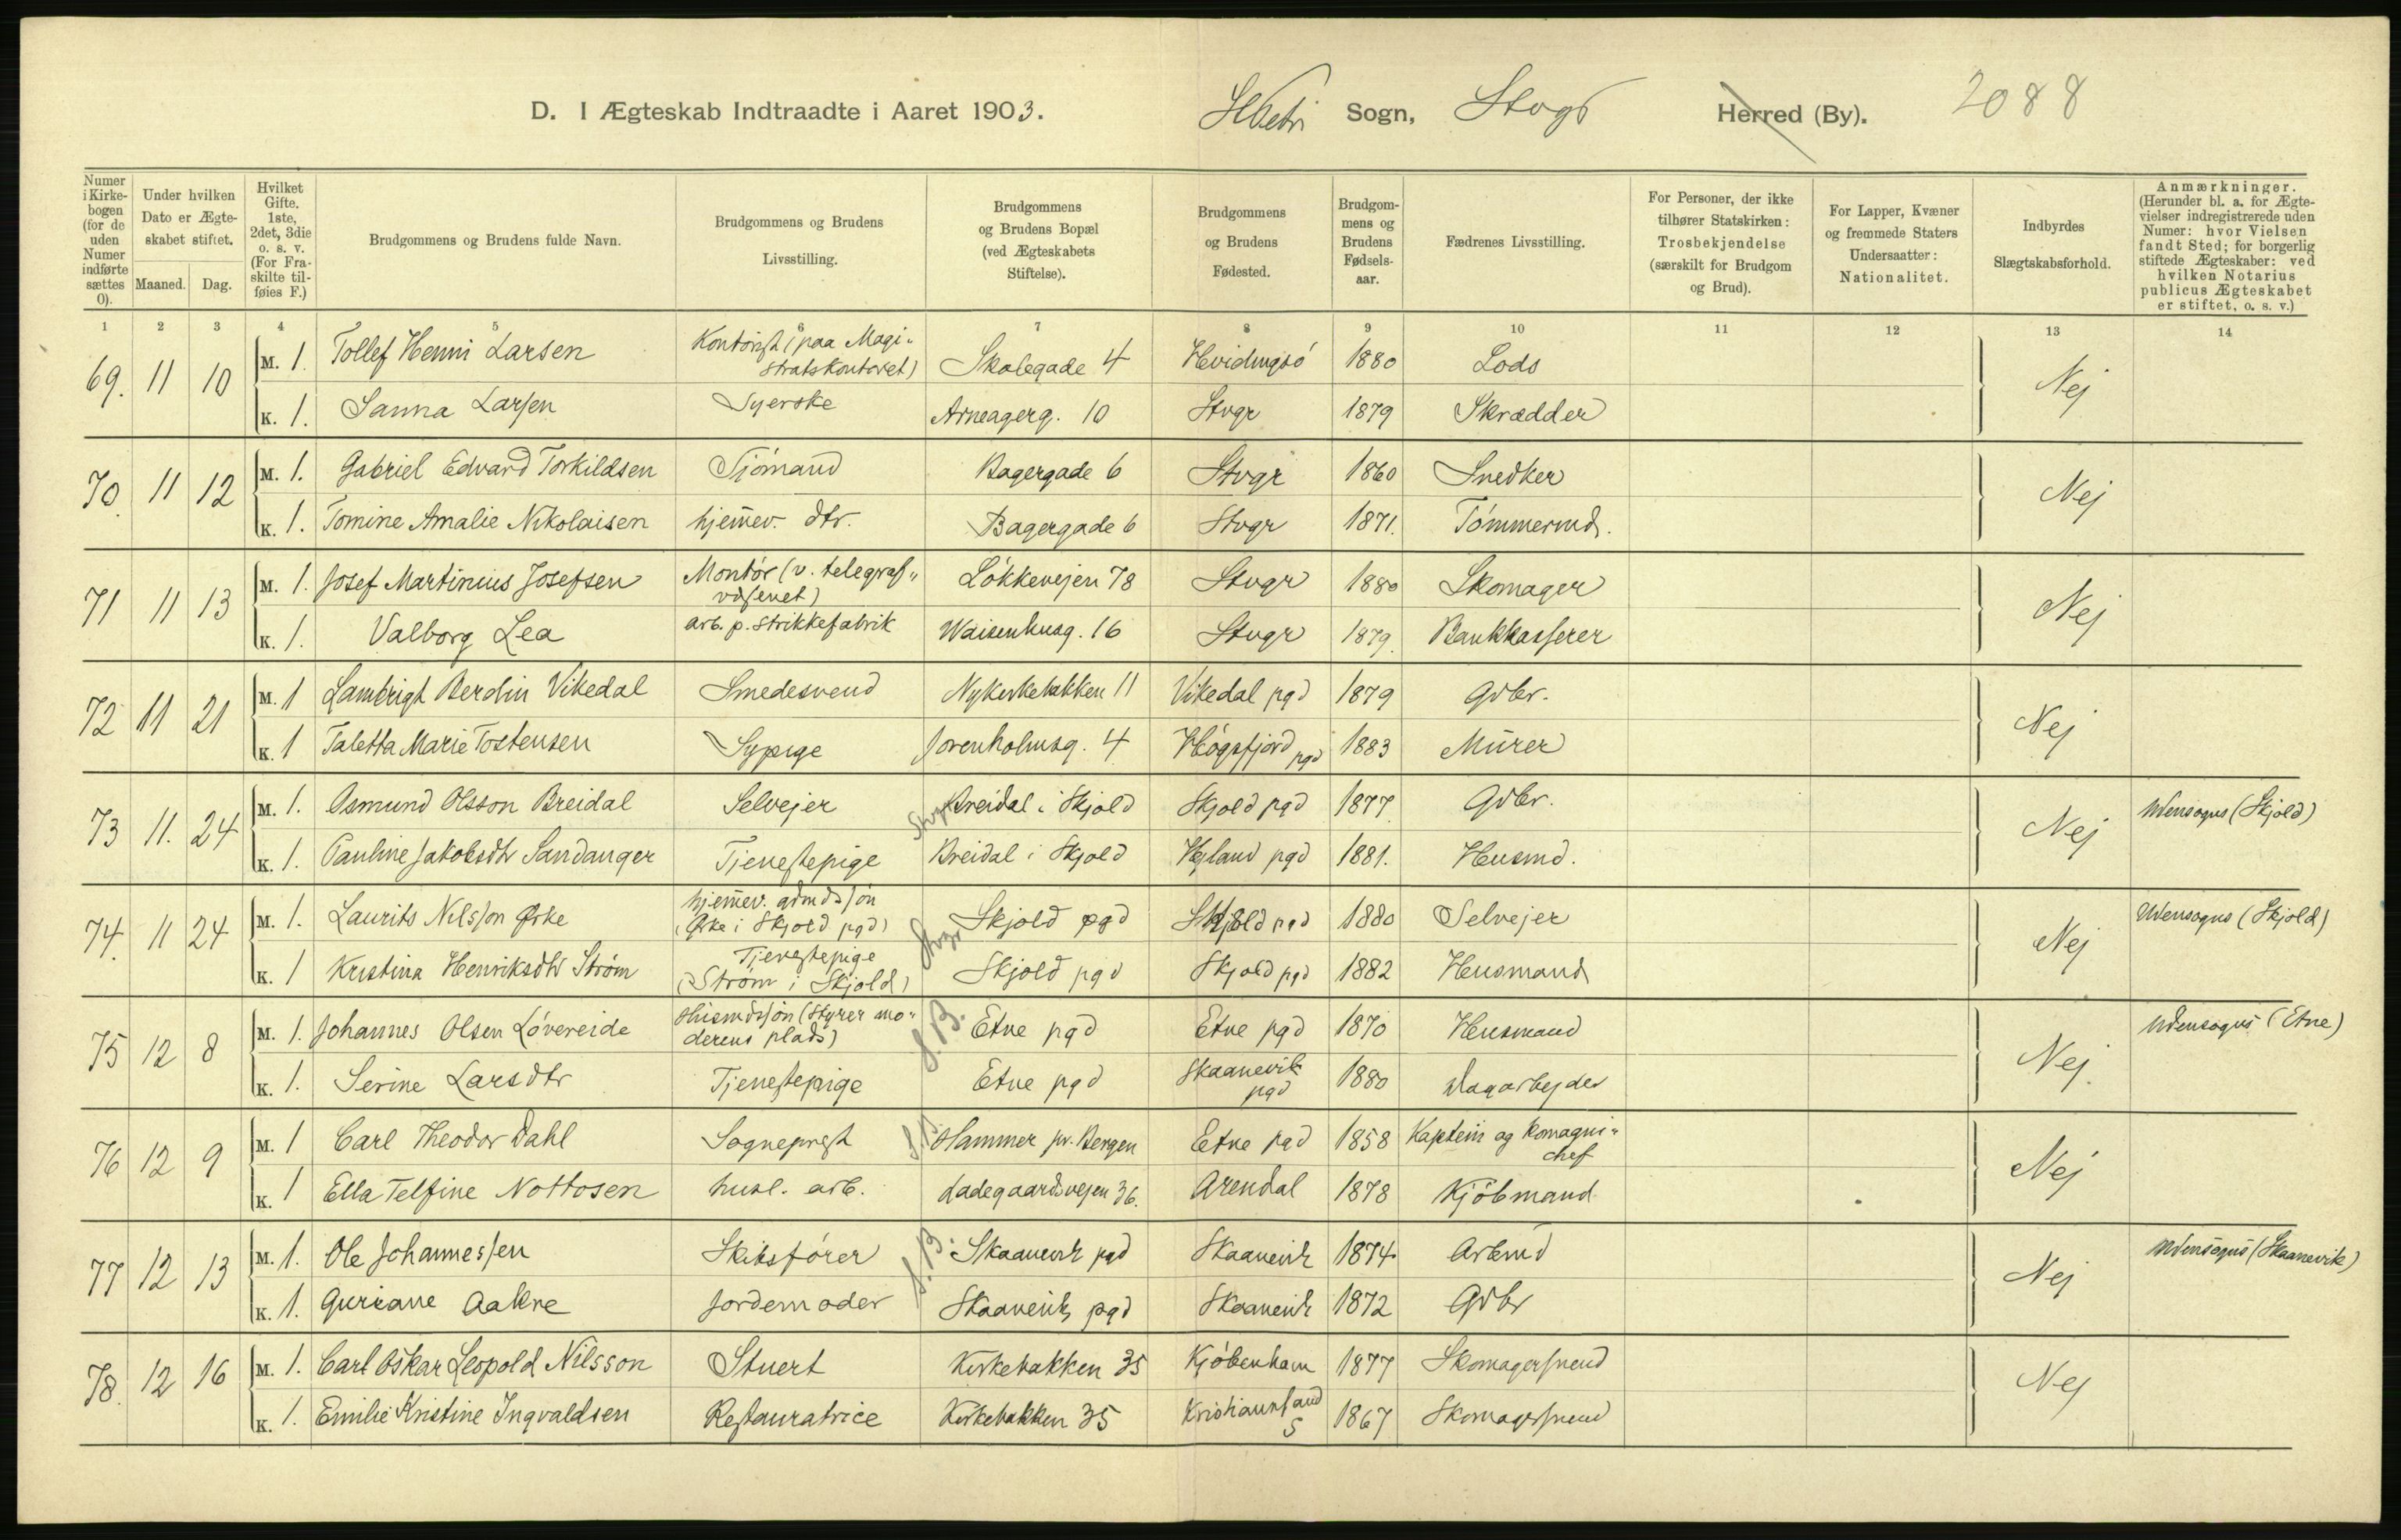 D. I Ægteskab Indtraadte i Aaret 1903. St Petri Sogn, Stvgr Herred (By). 2088
Numer i Kirkebogen (for de uden Numer indførte sættes 0).
Under hvilken Dato er Ægteskabet stiftet.
Maaned. Dag.
Hvilket Gifte. 1ste, 2det, 3die o. s. v. (For Fraskilte tilføies F.)
Brudgommens og Brudens fulde Navn.
Brudgommens og Brudens Livsstilling.
Brudgommens og Brudens Bopæl (ved Ægteskabets Stiftelse).
Brudgommens og Brudens Fødested.
Brudgommens og Brudens Fødselsaar.
Fædrenes Livsstilling.
For Personer, der ikke tilhører Statskirken: Trosbekjendelse (særskilt for Brudgom og Brud).
For Lapper, Kvæner og fremmede Staters Undersaatter: Nationalitet.
Indbyrdes Slægtskabsforhold.
Anmærkninger. (Herunder bl. a. for Ægtevielser indregistrerede uden Numer: hvor Vielsen fandt Sted; for borgerlig stiftede Ægteskaber: ved hvilken Notarius publicus Ægteskabet er stiftet, o. s. v.)
1 2 3 4 5 6 7 8 9 10 11 12 13 14
69. 11 10 M. 1. Tollef Henni Larsen Kontorist (paa Magistratskontoret) Skolegade 4 Hvidingsö 1880 Lods Nej
K. 1. Sanna Larsen Syerske Arneagerg. 10 Stvgr 1879 Skrædder
70. 11 12 M. 1. Gabriel Edvard Torkildsen Sjömand Bagergade 6 Stvgr 1860 Snedker Nej
K. 1. Tomine Amalie Nikolaisen hjemev. dtr. Bagergade 6 Stvgr 1871. Tömmermd.
71 11 13 M. 1. Josef Martinius Josefsen Montör (v. telegrafvæsenet) Lökkevejen 78 Stvgr 1880 Skomager Nej
K. 1. Valborg Lea arb. p. strikkefabrik Waisenhusg. 16 Stvgr 1879. Bankkasserer
72 11 21 M. 1 Lambrigt Berdin Vikedal Smedesvend Nykirkebakken 11 Vikedal pgd 1879 Gdbr. Nej
K. 1 Taletta Marie Tostensen Sypige Jorenholmsg. 4 Högsfjord pgd 1883 Murer
73 11. 24 M. 1. Osmund Olsson Breidal Selvejer Stvgr Breidal i Skjold Skjold pgd 1877 Gdbr. Nej Udensogns (Skjold)
K. 1. Pauline Jakobsdtr Sandanger Tjenestepige Breidal i Skjold Hejland pgd 1881. Husmd.
74. 11 24 M. 1. Laurits Nilsson Ørke hjemev. gdmdssön (Ørke i Skjold pgd) Stvgr Skjold pgd Skjold pgd 1880 Selvejer Nej Udensogns (Skjold)
K. 1 Kristina Henriksdtr Strøm Tjenestepige (Strøm i Skjold) Skjold pgd Skjold pgd 1882 Husmand
75 12 8 M. 1. Johannes Olsen Lövereide Husmdssön (styrer moderens plads) S. B. Etne pgd Etne pgd 1870 Husmand Nej. Udensogns (Etne)
K. 1. Serine Larsdtr Tjenestepige Etne pgd Skaanevik pgd 1880 Dagarbejder
76 12 9 M. 1 Carl Theodor Dahl Sogneprest Hammer pr. Bergen Etne pgd 1858 Kaptein og kompagnichef Nej
K. 1 Ella Telfine Nottosen husl. arb. Ladegaardsvejen 36. Arendal 1878 Kjöbmand
77 12 13 M. 1. Ole Johannessen Skibsförer S. B. Skaanevik pgd Skaanevik 1874 Arbmd Nej Udensogns (Skaanevik)
K. 1. Guriane Aakre Jordemoder Skaanevik pgd Skaanevik 1872 Gdbr
78. 12 16 M. 1. Carl Oskar Leopold Nilsson Stuert Kirkebakken 35 Kjöbenhavn 1877 Skomagersvend Nej
K. 1. Emilie Kristine Ingvaldsen Restauratrice Kirkebakken 35 Kristianssand S 1867 Skomagersvend